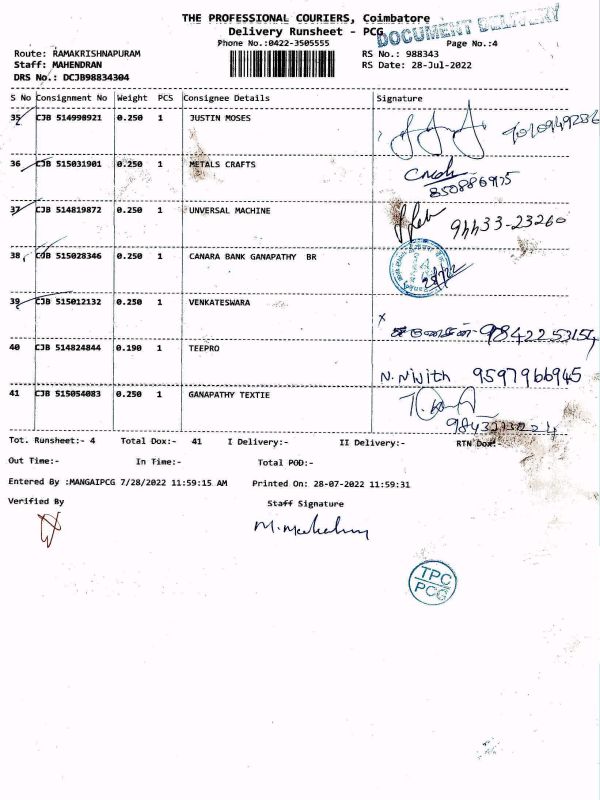 THE PROFESSIONAL COURIERS, Coimbatore
Delivery Runsheet - PCG
DOCUMENT DELIVERY
Phone No.:0422-3505555
Page No.:4
Route: RAMAKRISHNAPURAM
RS No.: 988343
Staff: MAHENDRAN
RS Date: 28-Jul-2022
DRS No.: DCJB98834304
S No Consignment No Weight PCS Consignee Details Signature
35 CJB 514998921 0.250 1 JUSTIN MOSES
36 CJB 515031901 0.250 1 METALS CRAFTS
8508869175
37 CJB 514819872 0.250 1 UNVERSAL MACHINE 94433-23260
38 CJB 515028346 0.250 1 CANARA BANK GANAPATHY BR
39 CJB 515012132 0.250 1 VENKATESWARA
x
9842253154
40 CJB 514824844 0.190 1 TEEPRO
N. Nivith 9597966945
41 CJB 515054083 0.250 1 GANAPATHY TEXTIE
Tot. Runsheet:- 4 Total Dox:- 41 I Delivery:- II Delivery:- RTN Dox:-
Out Time:- In Time:- Total POD:-
Entered By :MANGAIPCG 7/28/2022 11:59:15 AM Printed On: 28-07-2022 11:59:31
Verified By Staff Signature
TPC
PCG